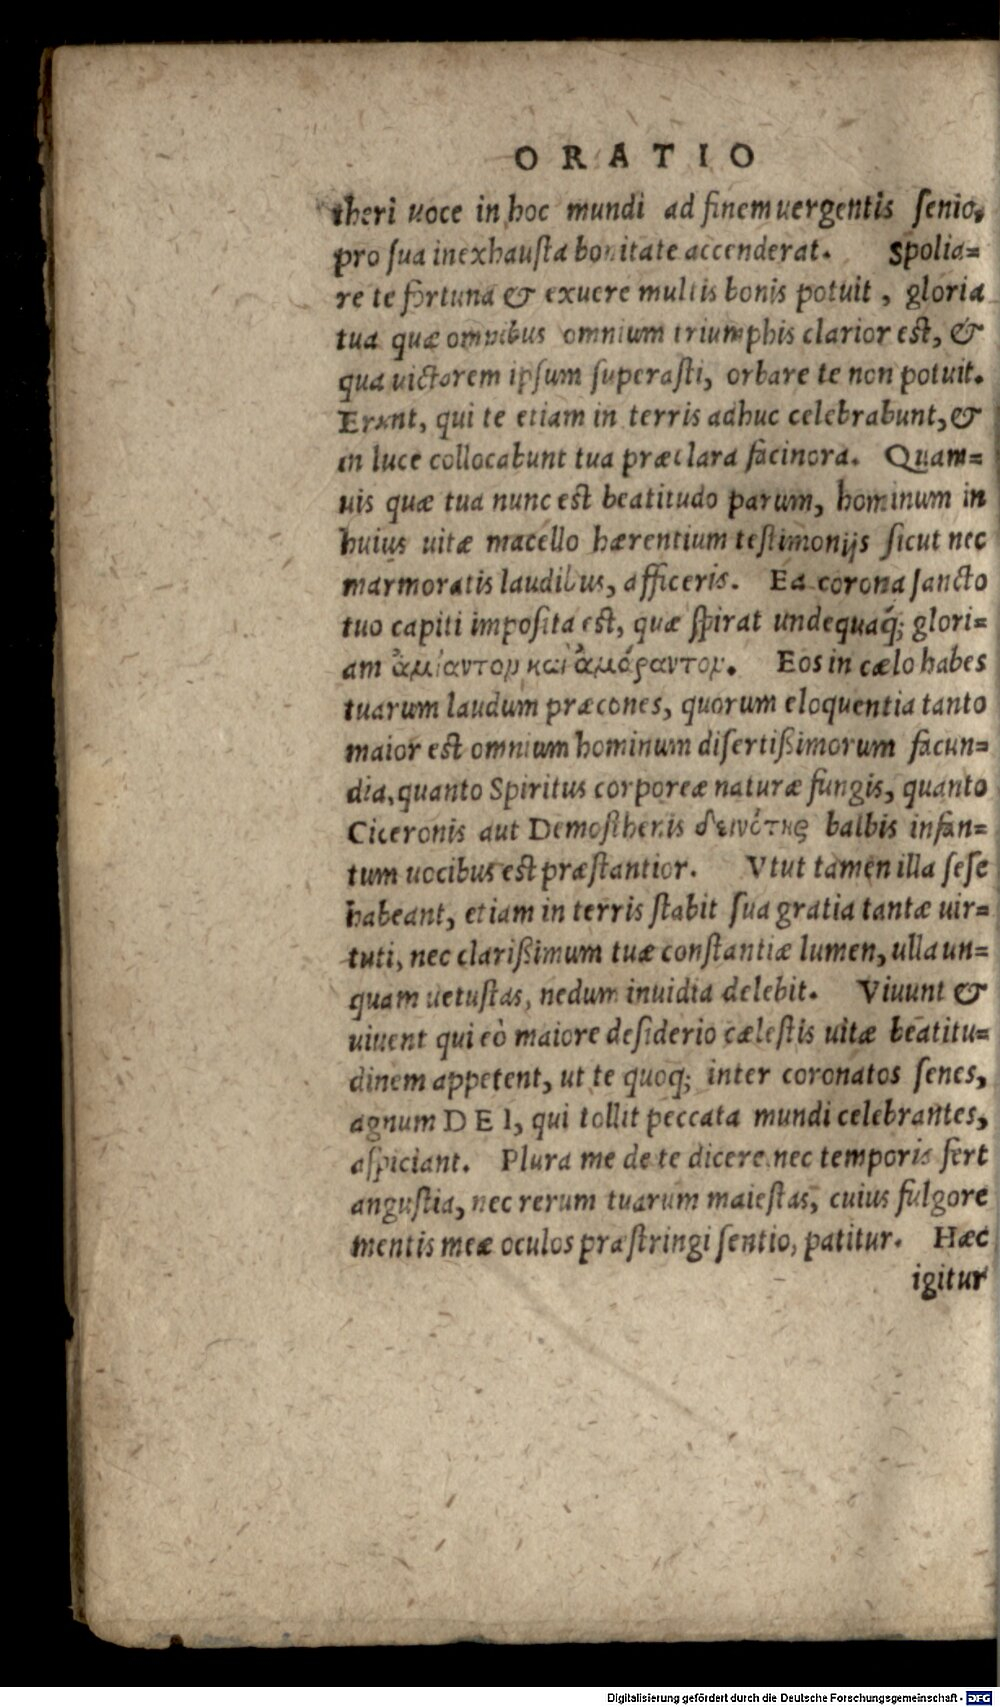 ORATIO
theri uoce in hoc mundi ad finem uergentis ſenio,
pro ſua inexhauſta bonitate accenderat. Spolia=
re te fortuna & exuere multis bonis potuit, gloria
tua quæ omnibus omnium triumphis clarior eſt, &
qua uictorem ipſum ſuperaſti, orbare te non potuit.
Erunt, qui te etiam in terris adhuc celebrabunt, &
in luce collocabunt tua præclara facinora. Quam=
uis quæ tua nunc eſt beatitudo parum, hominum in
huius uitæ macello hærentium teſtimonijs ſicut nec
marmoratis laudibus, afficeris. Ea corona ſancto
tuo capiti impoſita eſt, quæ ſpirat undequaq́; glori=
am ἀμίαντον καὶ ἀμάραντον. Eos in cælo habes
tuarum laudum præcones, quorum eloquentia tanto
maior eſt omnium hominum diſertißimorum facun=
dia, quanto Spiritus corporeæ naturæ fungis, quanto
Ciceronis aut Demoſthenis δεινότης balbis infan=
tum uocibus eſt præſtantior. Vtut tamen illa ſeſe
habeant, etiam in terris ſtabit ſua gratia tantæ uir=
tuti, nec clarißimum tuæ conſtantiæ lumen, ulla un=
quam uetuſtas, nedum inuidia delebit. Viuunt &
uiuent qui eò maiore deſiderio cæleſtis uitæ beatitu=
dinem appetent, ut te quoq; inter coronatos ſenes,
agnum DEI, qui tollit peccata mundi celebrantes,
aſpiciant. Plura me de te dicere nec temporis fert
anguſtia, nec rerum tuarum maieſtas, cuius fulgore
mentis meæ oculos præſtringi ſentio, patitur. Hæc
igitur
Digitalisierung gefördert durch die Deutsche Forschungsgemeinschaft - DFG